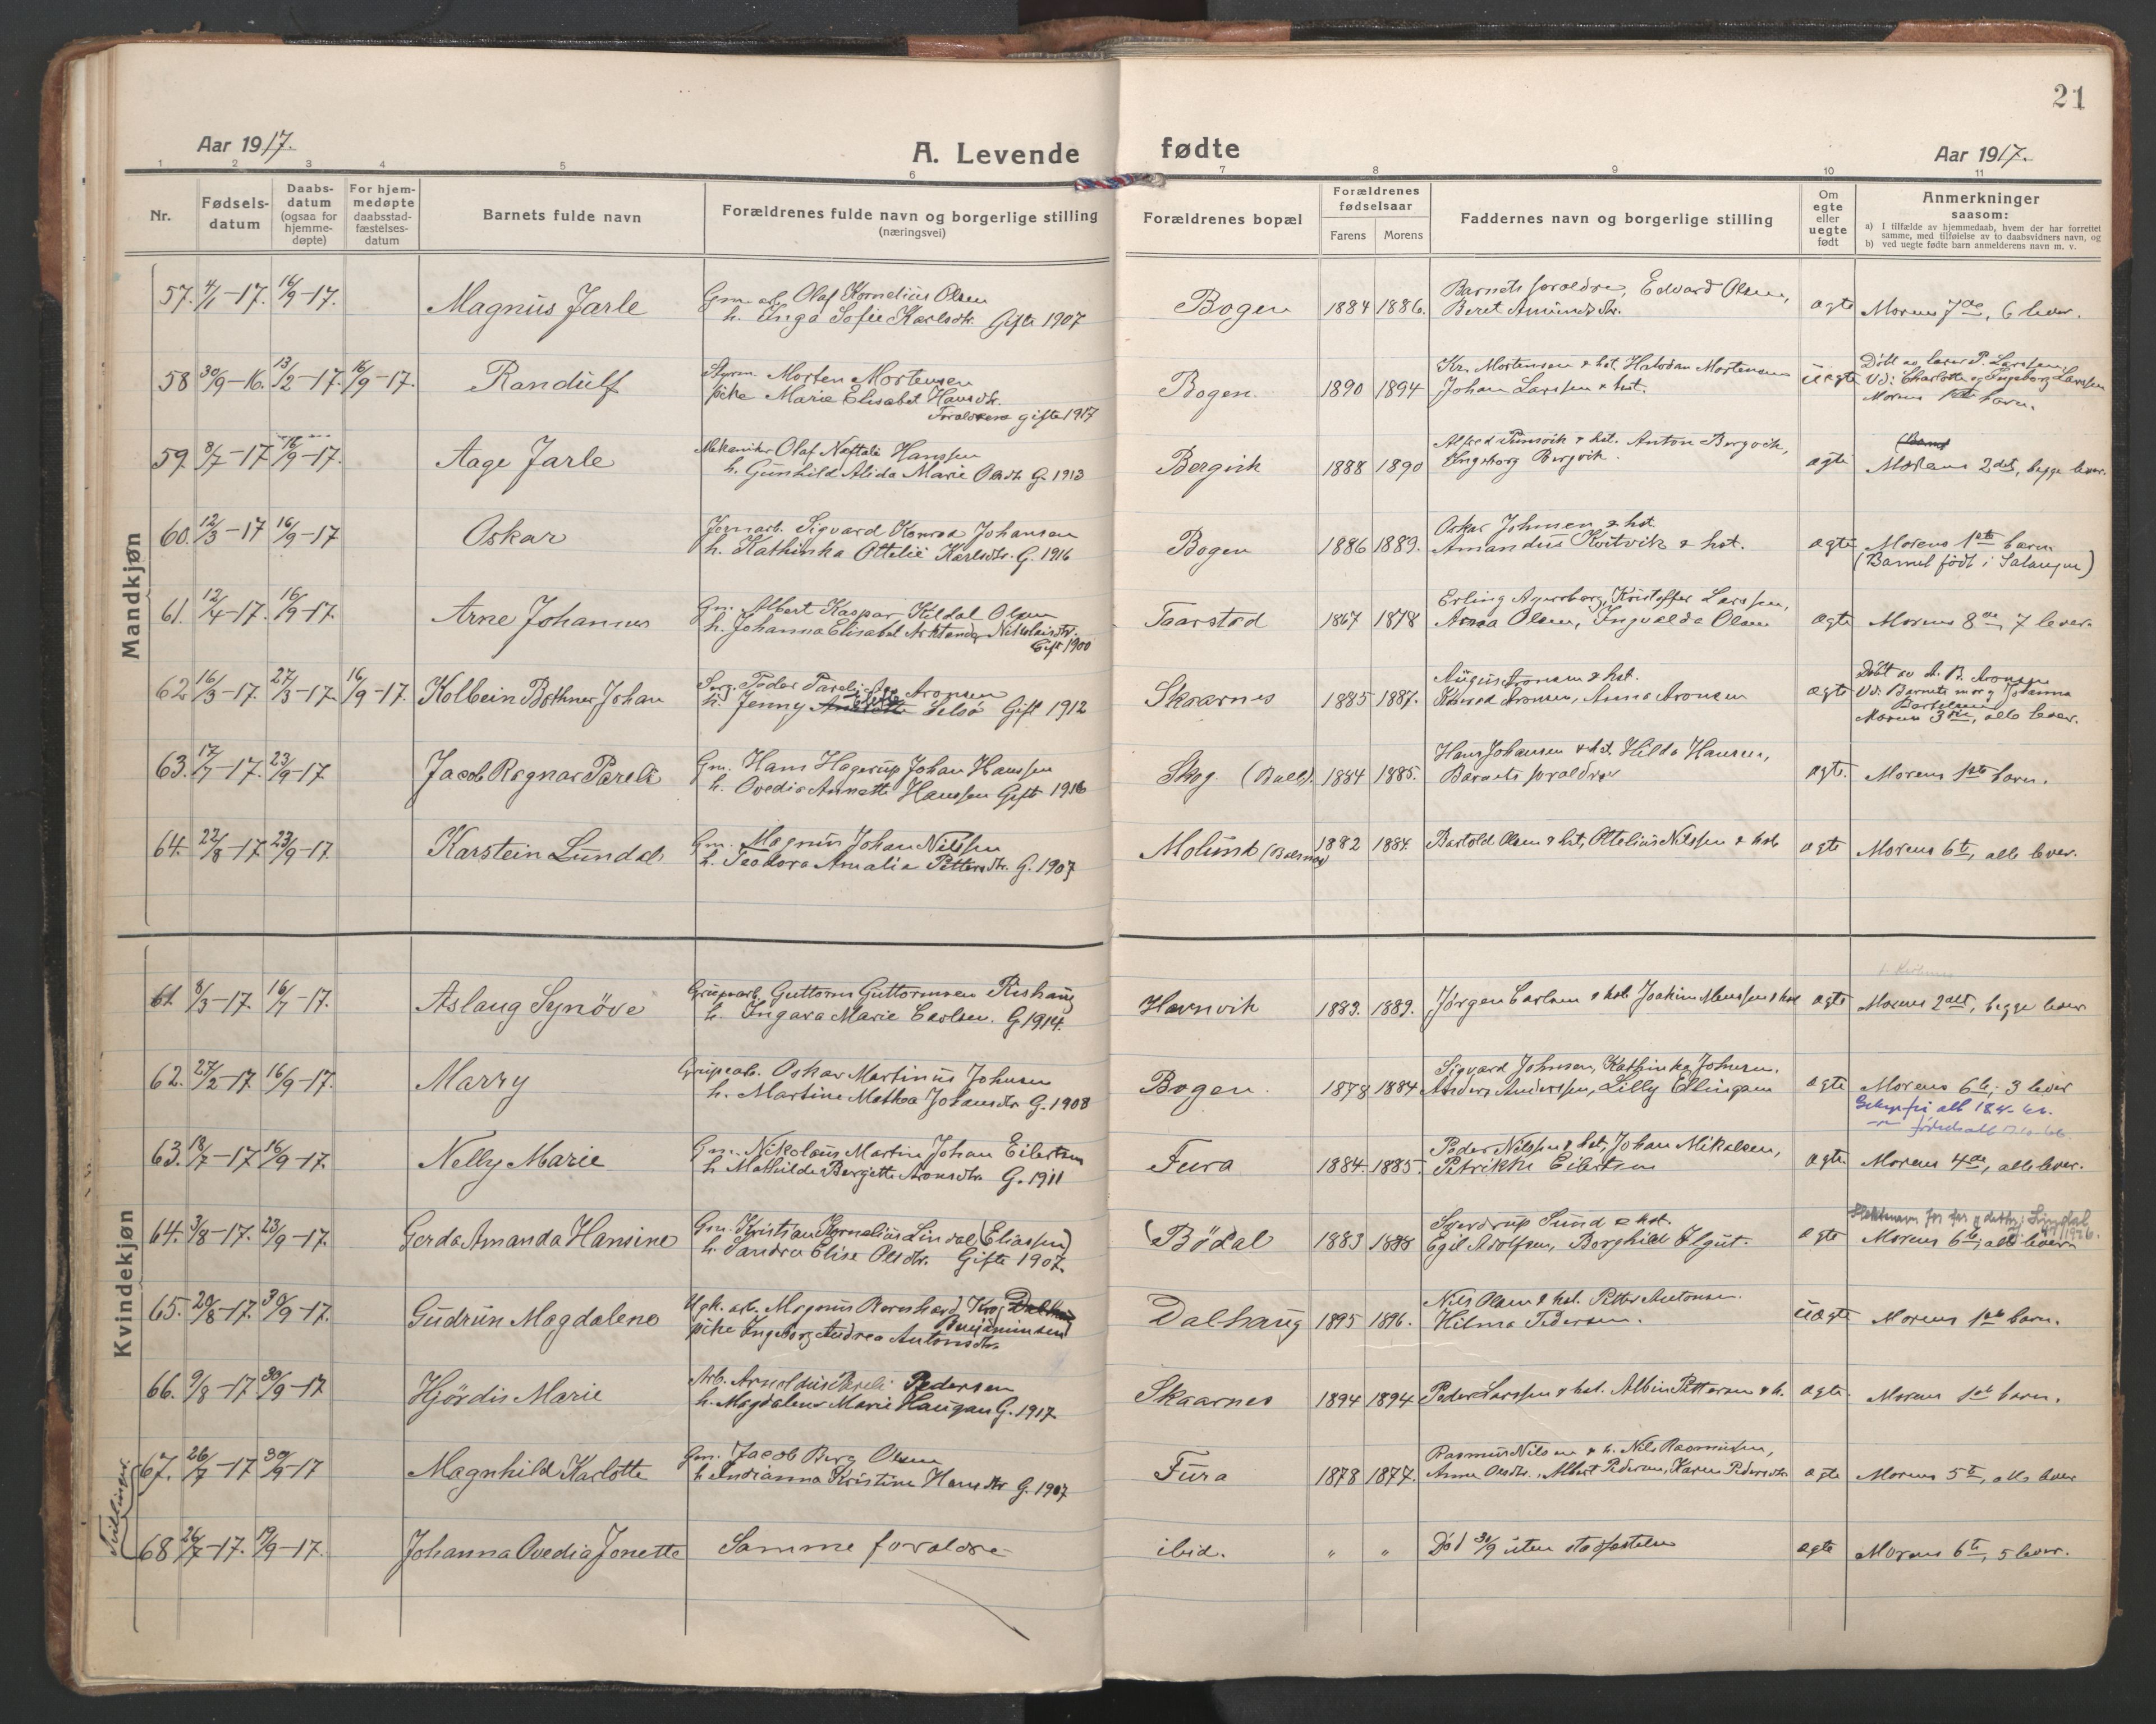 21
Aar 1917.
A. Levende
fødte
Aar 1917.
1 2 3 4 5 6 7 8 9 10 11
Nr.
Fødsels-datum
Daabs-datum (ogsaa for hjemme-døpte)
For hjem-medøpte daabsstad-fæstelses-datum
Barnets fulde navn
Forældrenes fulde navn og borgerlige stilling (næringsvei)
Forældrenes bopæl
Forældrenes fødselsaar
Farens Morens
Faddernes navn og borgerlige stilling
Om egte eller uegte født
Anmerkninger saasom:
a) I tilfælde av hjemmedaab, hvem der har forrettet samme, med tilføielse av to daabsvidners navn, og
b) ved uegte fødte barn anmelderens navn m. v.
Mandkjøn
57. 4/1-17. 16/9-17. Magnus Jarle
Gm. arb. Olaf Kornelius Olsen
h. Inga Sofie Karlsdtr. Gifte 1907
Bogen 1884 1886.
Barnets foraldre, Edvard Olsen,
Beret Amundsdtr.
ægte Morens 7de, 6 lever.
58 30/9-16. 13/2-17. 16/9-17. Randulf
Styrm. Morten Mortensen
pike Marie Elisabet Hansdtr.
Foraldrene gifte 1917
Bogen. 1890 1894
Kr. Mortensen & hst. Halvdan Mortensen
Johan Larssen & hst.
uægte
Døbt av lærer P. Larssen.
Vd: Charlotte og Ingeborg Larssen
Morens 1ste barn.
59. 8/7-17 16/9-17. Aage Jarle
Mekaniker Olaf Naftali Hanssen
h. Gunhild Alida Marie Olsdtr. G. 1913
Bergvik 1888 1890
& hst. Anton Bergvik,
Ingeborg Bergvik.
ægte Morens 2det, begge lever.
60. 12/3-17 16/9-17 Oskar
Jernarb. Sigvard Konrad Johansen
h. Kathinka Ottelie Karlsdtr. G. 1916
Bogen 1886 1889.
Oskar Johnsen & hst.
Amandus Kvitvik & hst.
ægte Morens 1ste barn
(Barnet født i Salangen)
61. 12/4-17. 16/9-17. Arne Johannes
Gm. Albert Kaspar Kildal Olsen
h. Johanna Elisabet Nikolaisdtr.
Gift 1900
Taarstad 1867 1878
Erling Agersborg, Kristoffer Larssen,
Anna Olsen, Ingvalda Olsen
ægte Morens 8de, 7 lever.
62 16/3-17. 27/3-17. 16/9-17. Kolbein Bothner Johan
Peder Pareli Aronsen
h. Jenny Selsø Gift 1912
Skaarnes 1885 1887.
August Aronsen & hst.
Konrad Aronsen, Anna Aronsen
ægte
Døbt av A. B. Aronsen
Vd: Barnets mor og Johanna
Bertelsen
Morens 3die, alle lever.
63. 17/7-17. 23/9-17 Jacob Ragnar Pareli
Gm. Hans Hagerup Johan Hanssen
h. Ovedia Annette Hanssen Gift 1916
Skog (Balls). 1884 1885.
Hans Johansen & hst. Hilda Hansen,
Barnets foraldre
ægte. Morens 1ste barn.
64. 22/8-17 23/9-17. Karstein Lundal
Gm. Magnus Johan Nilssen
h. Teodora Amalia Pettersdtr. G. 1907
Molund (Balsnes) 1882 1884.
Bartold Olsen & hst, Ottelius Nilssen & hst.
ægte Morens 6te, alle lever.
Kvindekjøn
61. 8/3-17. 16/9-17. Aslaug Synøve
Grupearb. Guttorm Guttormsen Rishaug
h. Ingara Marie Carlsen. G. 1914.
Havnvik 1883. 1889.
Jørgen Carlsen & hst. Joakim Monssen & hst.
ægte Morens 2det, begge lever
62. 27/2-17 16/9-17. Marry
Grupearb. Oskar Martinus Johnsen
h. Martine Mathea Johansdtr. G. 1908
Bogen. 1878 1884
Sigvard Johnsen, Kathinka Johnsen,
Anders Anderssen, Lilly Ellingsen
ægte Morens 6te, 3 lever
63. 18/7-17 16/9-17. Nelly Marie
Gm. Nikolaus Martin Johan Eilertsen
h. Mathilde Bergette Aronsdtr. G. 1911
Fura 1884. 1885
Peder Nilssen & hst, Johan Mikalsen,
Petrikke Eilertsen
ægte. Morens 4de, alle lever.
64. 3/8-17. 23/9-17. Gerda Amanda Hansine
Gm. Kristian Kornelius Lindal (Eliassen)
h. Sandra Elise Olsdtr. Gifte 1907.
Bødal 1883 1888
Sverdrup Sund & hst.
Egil Adolfsen, Borghild Elgut.
ægte Morens 6te, alle lever
65. 20/8-17. 30/9-17. Gudrun Magdalene
Ugk. arb. Magnus Bernhard Krog Dalhaug
Benjaminsen
pike Ingeborg Andrea Antonsdtr.
Dalhaug 1895 1896.
Nils Olsen & hst. Petter Antonsen
Hilma Pedersen.
uægte Morens 1ste barn.
66. 9/8-17. 30/9-17 Hjørdis Marie
Arb. Arnoldus Pareli Pedersen
h. Magdalene Marie Haugan G. 1917.
Skaarnes 1894 1894
Peder Larssen & hst. Albin Pettersen & h.
ægte. Morens 1ste barn.
Tvillinger.
67. 26/7-17 30/9-17 Magnhild Karlotte
Gm. Jacob Berg Olsen
h. Indianna Kristine Hansdtr G. 1907
Fura 1878 1877.
Rasmus Nilsen & h. Nils Rasmussen,
Anne Olsdtr., Albert Pedersen, Karen Pedersdtr.
ægte Morens 5te, alle lever
68 26/7-17. 19/9-17. Johanna Ovedia Jonette
Samme foraldre
ibid. " "
Død 30/9 uten stadfæstelse
ægte Morens 6te, 5 lever.